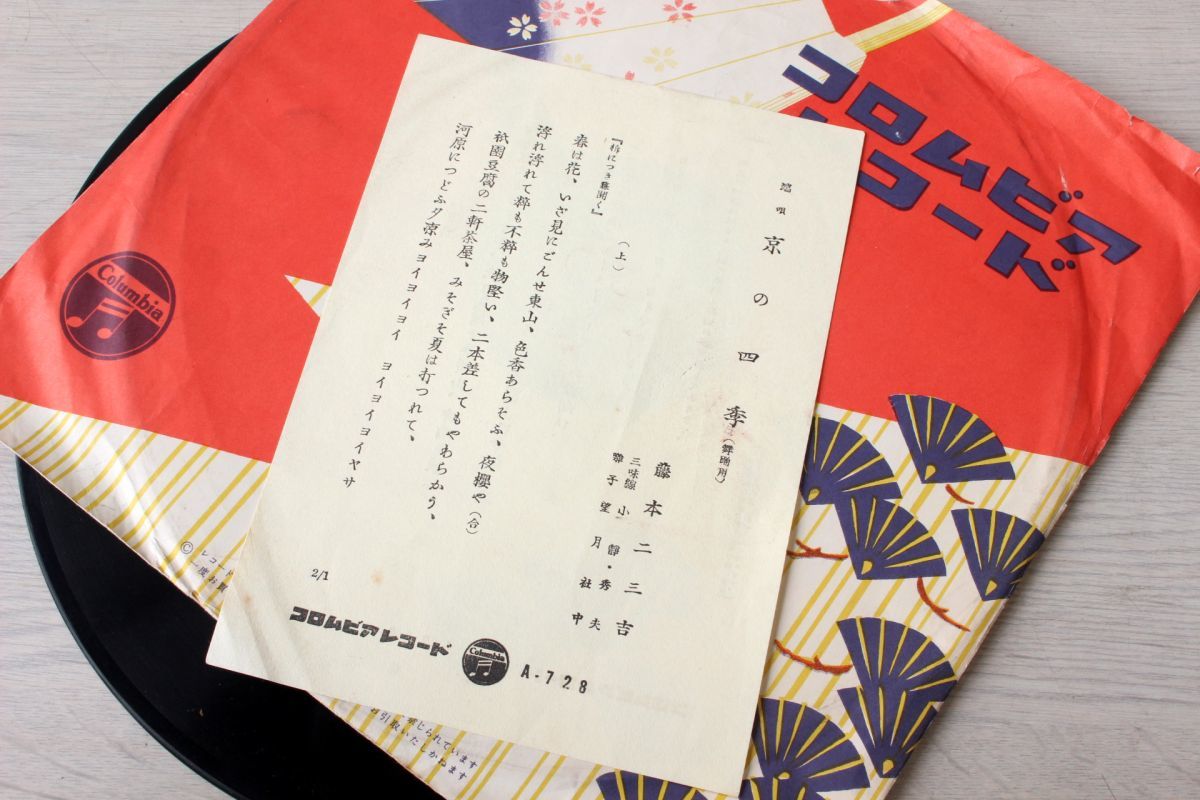 コロムビア
レコード
Columbia
端唄 京の四季(舞踊用)
藤本二三吉
三味線 小静・秀夫
囃子 望月社中
『柝につき幕開く』
(上)
春は花、いざ見にごんせ東山、色香あらそふ、夜櫻や(合)
浮れ浮れて粹も不粹も物堅い、二本差してもやわらかう、
祇園豆腐の二軒茶屋、みそぎぞ夏は打つれて、
河原につどふ夕凉みヨイヨイヨイ ヨイヨイヨイヤサ
2/1
コロムビアレコード
Columbia
A-728
© レコード
一度お買
じられています
お引取いたしかねます